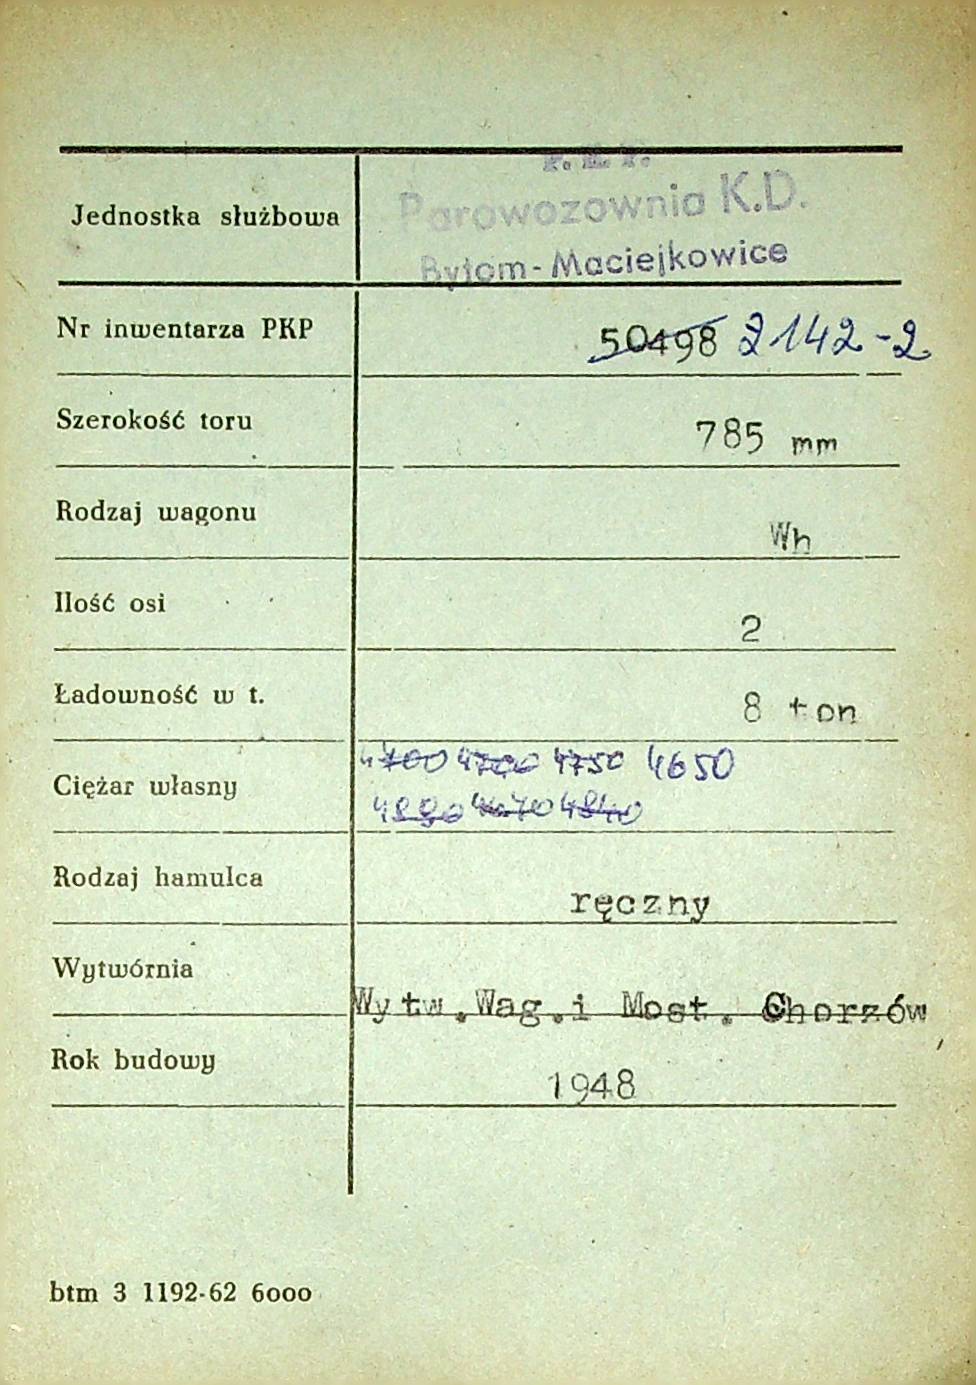 P. K. P.
Jednostka służbowa Parowozownia K.D.
Bytom-Maciejkowice
Nr inwentarza PKP 50498 2142-2
Szerokość toru 785 mm
Rodzaj wagonu Wh
Ilość osi 2
Ładowność w t. 8 ton
4700 4700 4750 4650
Ciężar własny 4670 4840
Rodzaj hamulca ręczny
Wytwórnia Wytw.Wag.i Most. Chorzów
Rok budowy 1948
btm 3 1192-62 6000